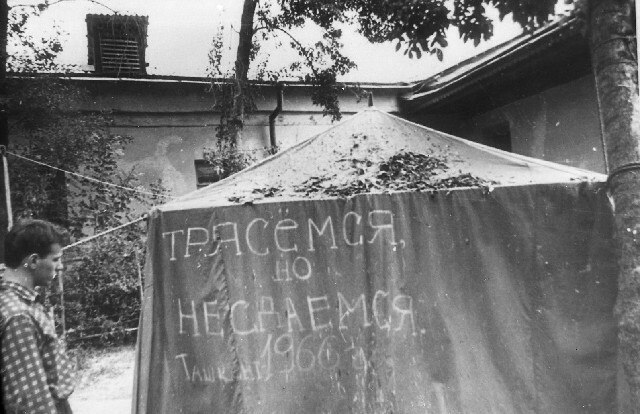 ТРЯСЁМСЯ,
НО
НЕ СДАЕМСЯ.
ТАШКЕНТ 1966 г.